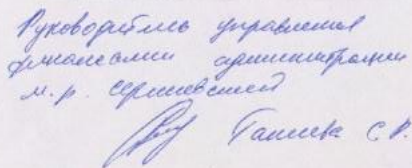 Руководитель управления
финансами администрации
м.р. Сергиевский
С.Р.